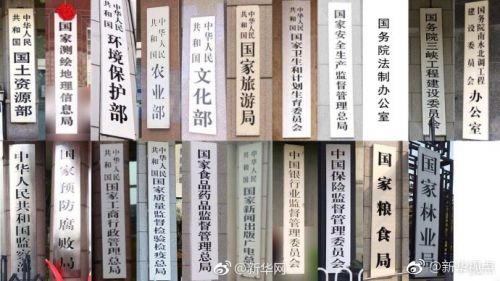 中华人民
共和国
国土资源部
国家测绘地理信息局
中华人民
共和国
环境保护部
中华人民
共和国
农业部
中华人民
共和国
文化部
中华人民
共和国
国家旅游局
中华人民
共和国
国家卫生和计划生育委员会
国家安全生产监督管理总局
国务院法制办公室
国务院三峡工程建设委员会
国务院南水北调工程
建设委员会
办公室
中华人民共和国监察部
国家预防腐败局
中华人民
共和国
国家工商行政管理总局
中华人民
共和国
国家质量监督检验检疫总局
国家食品药品监督管理总局
中华人民
共和国
国家新闻出版广电总局
中国银行业监督管理委员会
中国保险监督管理委员会
国家粮食局
国家林业局
@新华网
@新华视点